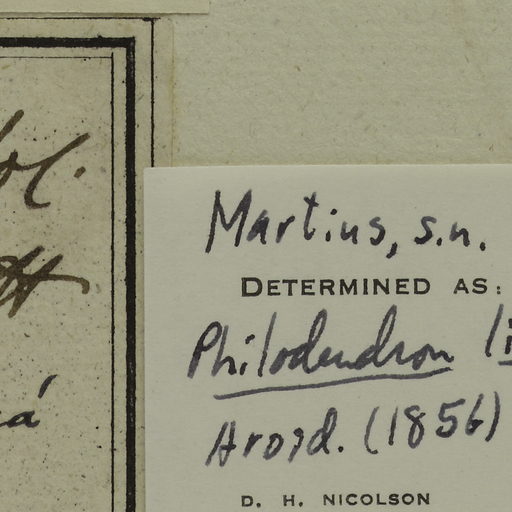 Martius, s.n.
DETERMINED AS:
Philodendron
Aroid. (1856)
D. H. NICOLSON